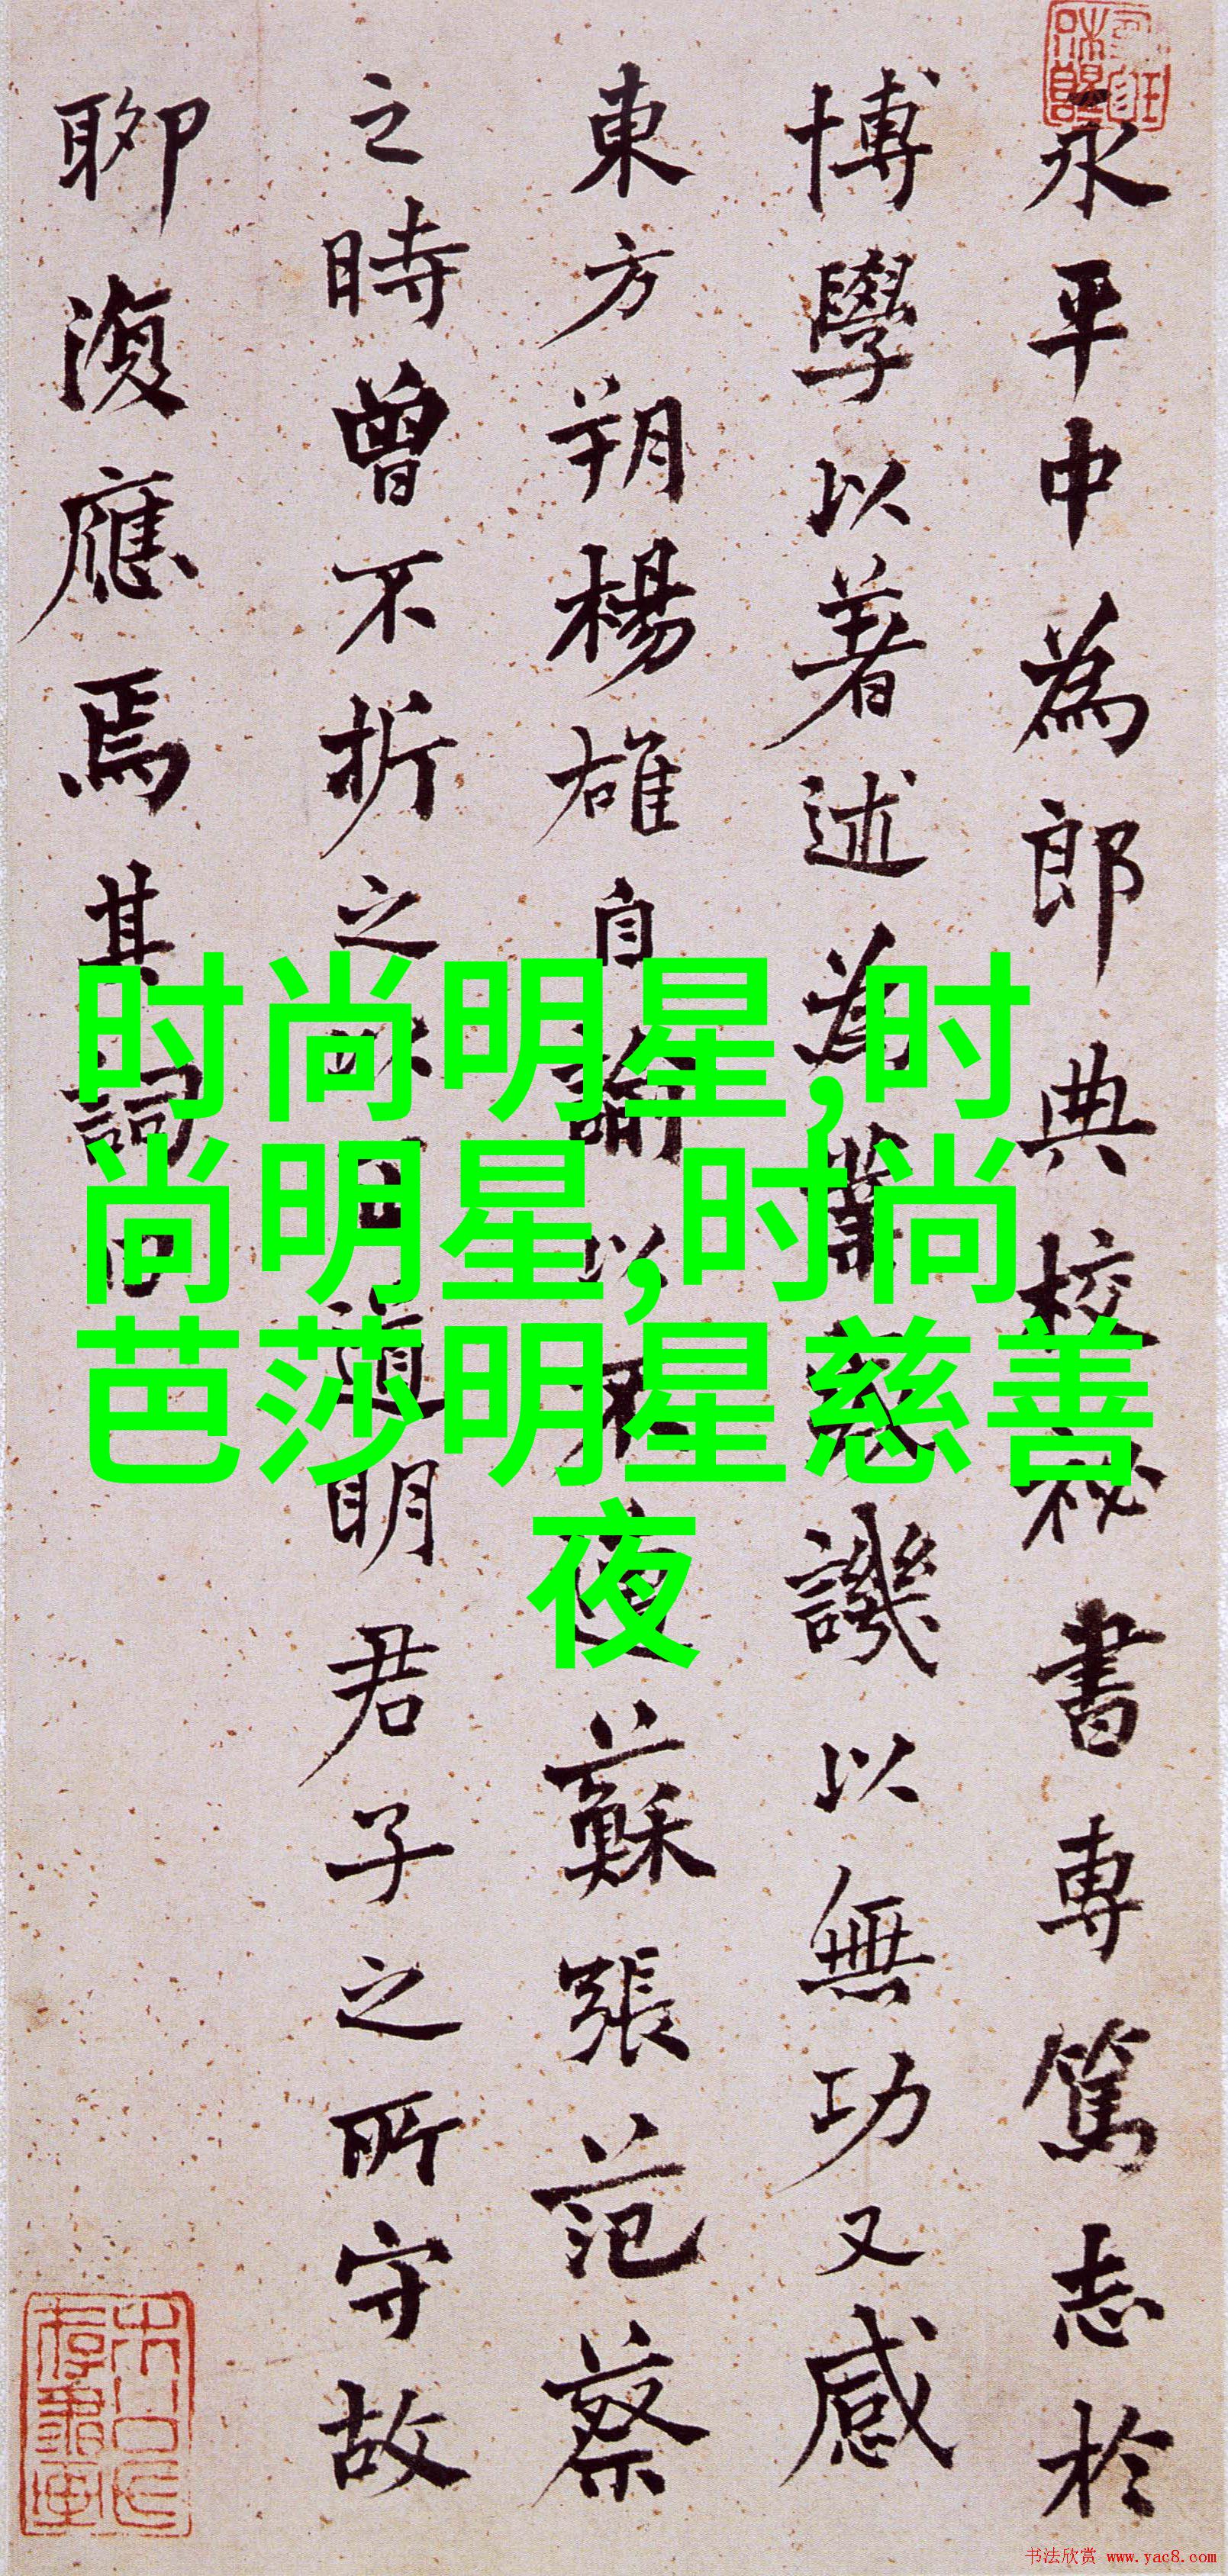 永平中為郎典校秘書專篤志於
博學以著述為業或譏以無功又感
東方朔楊雄自諭以不遭蘇張范蔡
之時曾不折之以正道明君子之所守故
聊復應焉其詞曰
时尚明星,时
尚明星,时尚
芭莎明星慈善
夜
书法欣赏 www.yac8.com